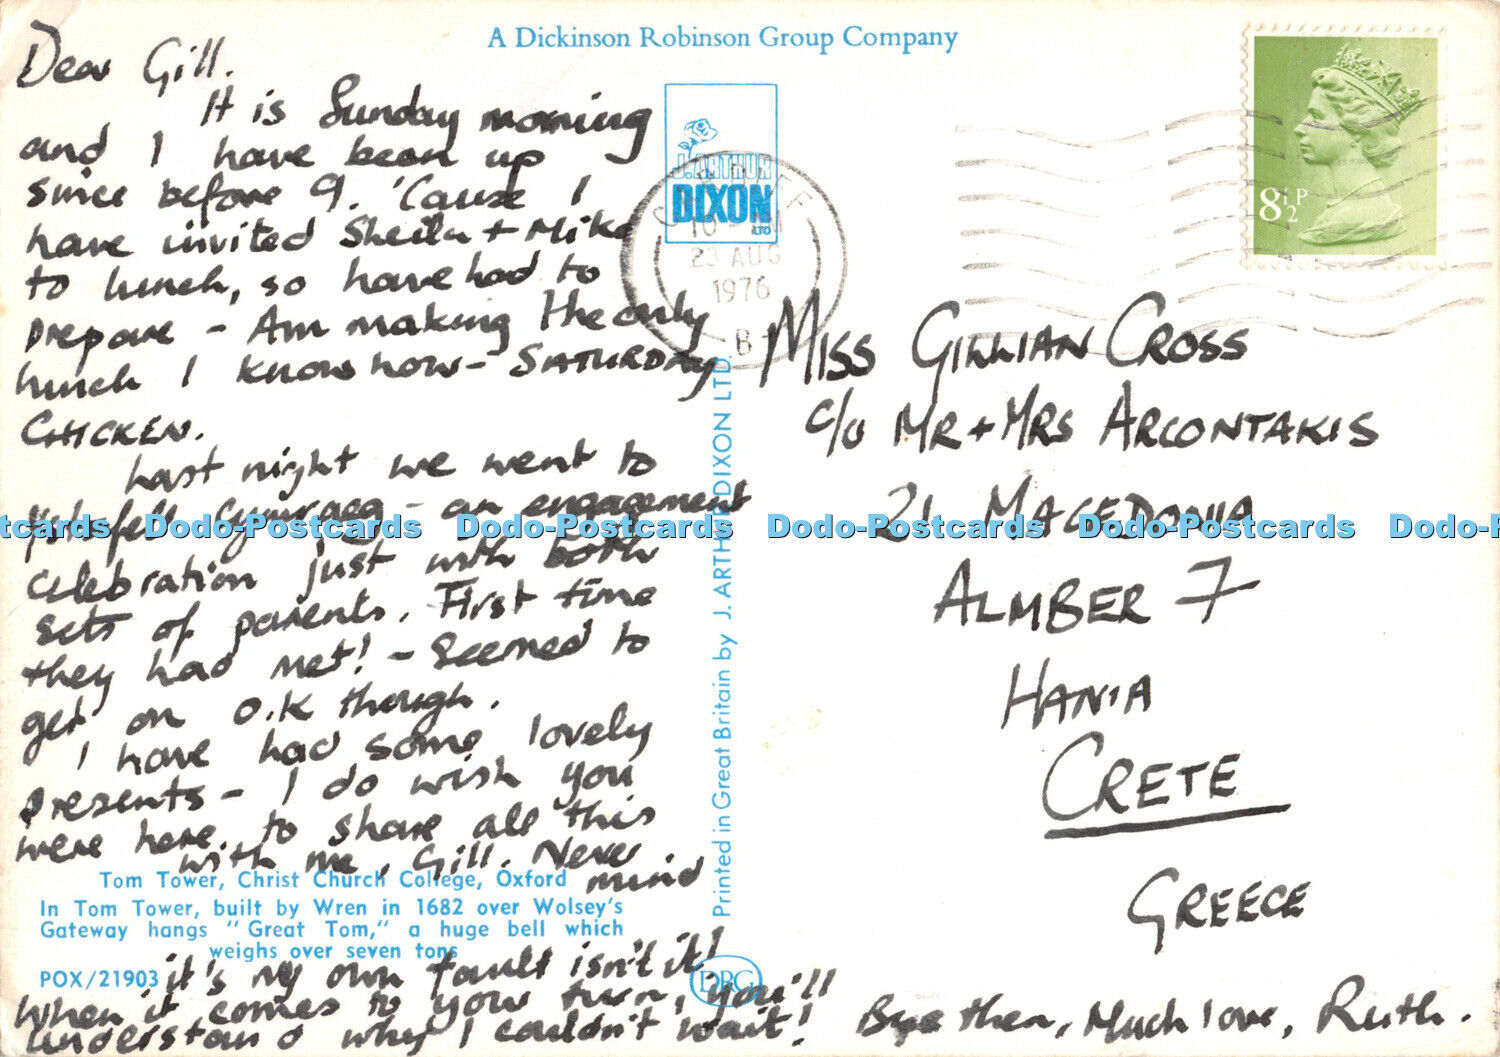 A Dickinson Robinson Group Company
Dear Gill.
It is Sunday morning
and I have been up
since before 9. 'Cause I
have invited Sheila + Mike
to lunch, so have had to
prepare - Am making the only
lunch I know how - SATURDAY
CHICKEN.
Last night we went to
Cymraeg - an engagement
celebration just with both
sets of parents. First time
they had met! - Seemed to
get on O.K though.
I have had some lovely
presents - I do wish you
were here to share all this
with me, Gill. Never
mind
Tom Tower, Christ Church College, Oxford
In Tom Tower, built by Wren in 1682 over Wolsey's
Gateway hangs "Great Tom," a huge bell which
weighs over seven tons
POX/21903
it's my own fault isn't it!
When it comes to your turn, you'll
understand why I couldn't wait!
Bye then, Much love, Ruth.
J. ARTHUR
DIXON
LTD
23 AUG
1976
B
8½P
Printed in Great Britain by J. ARTHUR DIXON LTD.
DRG
MISS GILLIAN CROSS
c/o MR + MRS ARCONTAKIS
21 MACEDONIA
ALMBER 7
HANIA
CRETE
GREECE
Dodo-Postcards Dodo-Postcards Dodo-Postcards Dodo-Postcards Dodo-Postcards